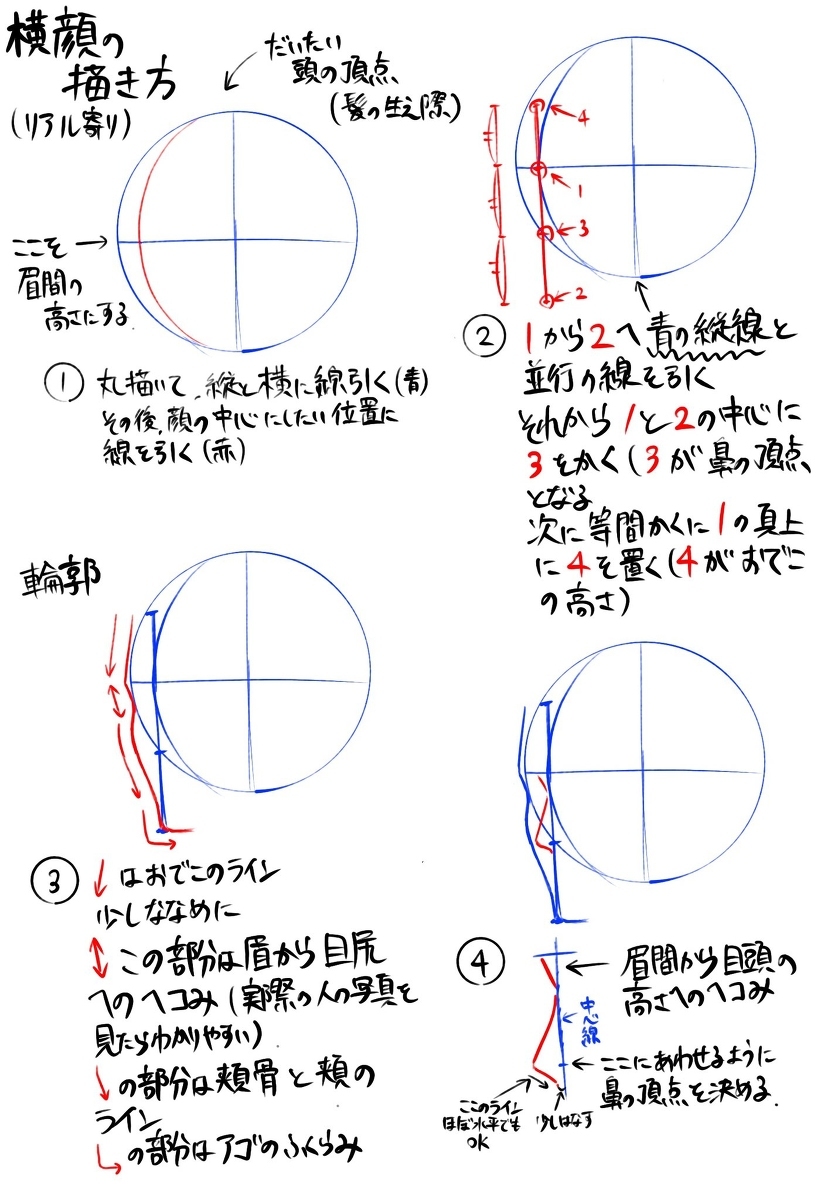 横顔の
描き方
(リアル寄り)
だいたい
頭の頂点
(髪の生え際)
ここを
眉間の
高さにする
① 丸描いて、縦と横に線引く(青)
その後、顔の中心にしたい位置に
線を引く(赤)
4
1
3
2
② 1から2へ青の縦線と
並行の線を引く
それから1と2の中心に
3をかく(3が鼻の頂点
となる
次に等間かくに1の真上
に4を置く(4がおでこ
の高さ)
輪郭
③ ↓はおでこのライン
少しななめに
↕この部分は眉から目尻
へのヘコみ(実際の人の写真を
見たらわかりやすい)
↘の部分は頬骨と頬の
ライン
↳の部分はアゴのふくらみ
④
眉間から目頭の
高さへのヘコみ
中心線
ここにあわせるように
鼻の頂点を決める
ここのライン
ほぼ水平でも
OK
少しはなす